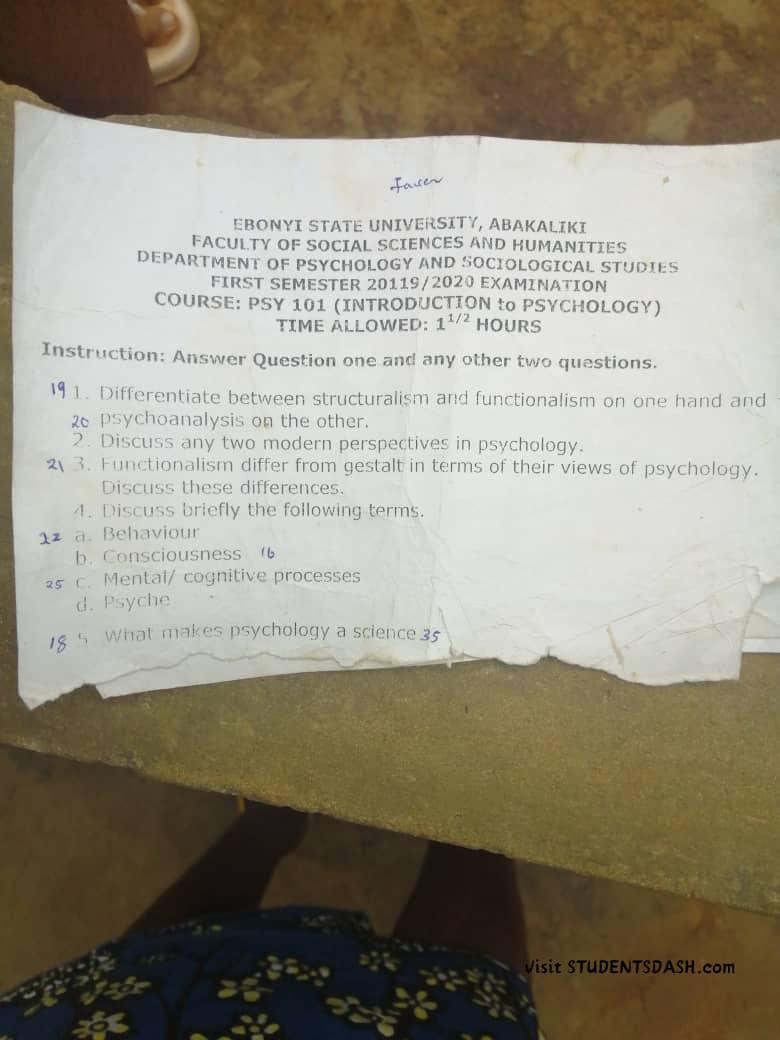 EBONYI STATE UNIVERSITY, ABAKALIKI
FACULTY OF SOCIAL SCIENCES AND HUMANITIES
DEPARTMENT OF PSYCHOLOGY AND SOCIOLOGICAL STUDIES
FIRST SEMESTER 20119/2020 EXAMINATION
COURSE: PSY 101 (INTRODUCTION to PSYCHOLOGY)
TIME ALLOWED: 1 1/2 HOURS
Instruction: Answer Question one and any other two questions.
19 1. Differentiate between structuralism and functionalism on one hand and
20 psychoanalysis on the other.
2. Discuss any two modern perspectives in psychology.
21 3. Functionalism differ from gestalt in terms of their views of psychology.
Discuss these differences.
4. Discuss briefly the following terms.
22 a. Behaviour
b. Consciousness 16
25 c. Mental/ cognitive processes
d. Psyche
18 5 What makes psychology a science 35
visit STUDENTSDASH.com